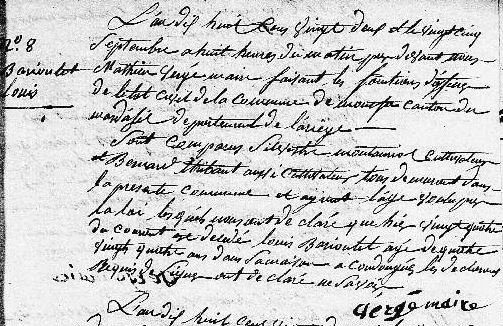 L'an dix huit cens vingt deux et le vingt cinq
n.° 8
Septembre a huit heures du matin par devant nous
Barioulet
Louis
Mathieu Vergé maire faisant les fonctions d'officier
de letat civil de la Commune de canton du
masdasil departement de lariège
Sont comparus Silvestre Cultivateur
et Bernard aussi Cultivateur tous demeurant dans
la presente commune et ayant l'age voulu par
la loi lesquels nous ont declaré que hier vingt quatre
du courant est decedé Louis Barioulet agé de quatre
vingt quatre ans dans sa maison a les declarans
Requis de signer ont declaré ne savoir
Vergé maire
L'an dix huit cens vingt